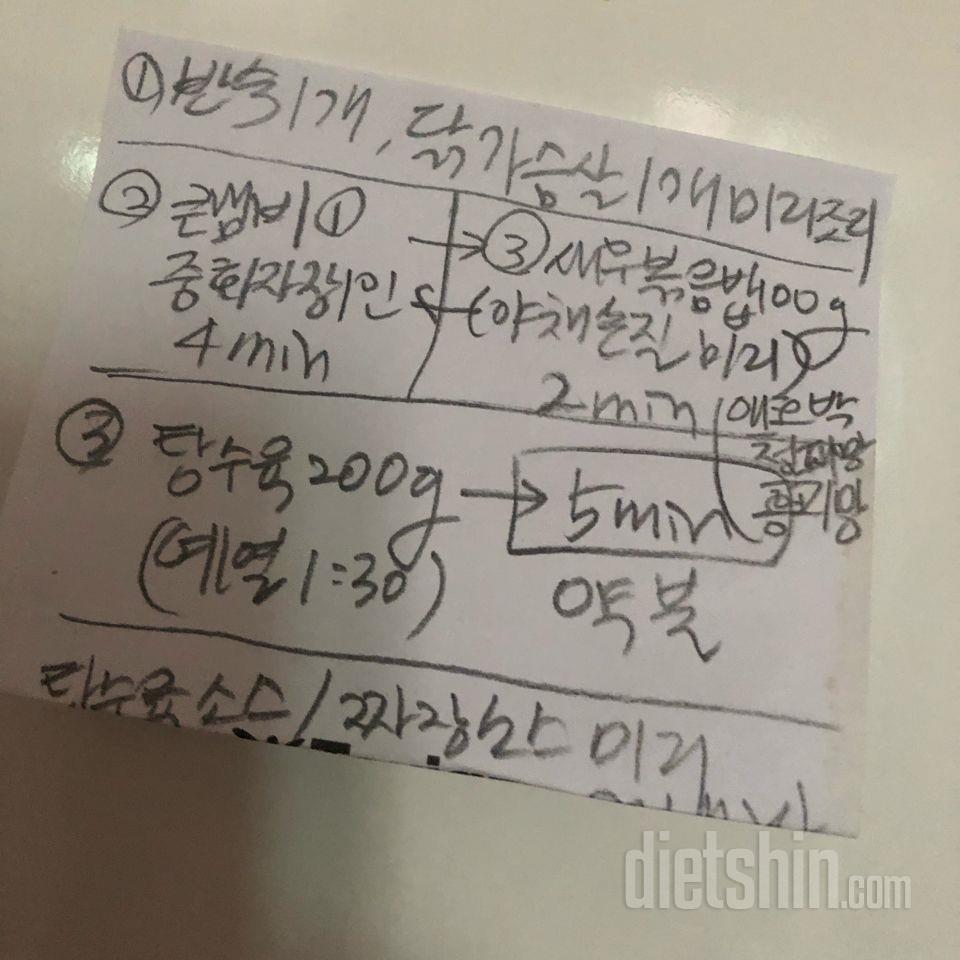 ① 반숙1개, 닭가슴살1개 미리조리
② 큰냄비①
중화자장1인
4min
→ ③ 새우볶음밥100g
(야채손질 미리)
2min
애호박
청피망
홍피망
③ 탕수육 200g → 5min
(예열 1:30) 약불
탕수육소스/짜장소스 미리
dietshin.com